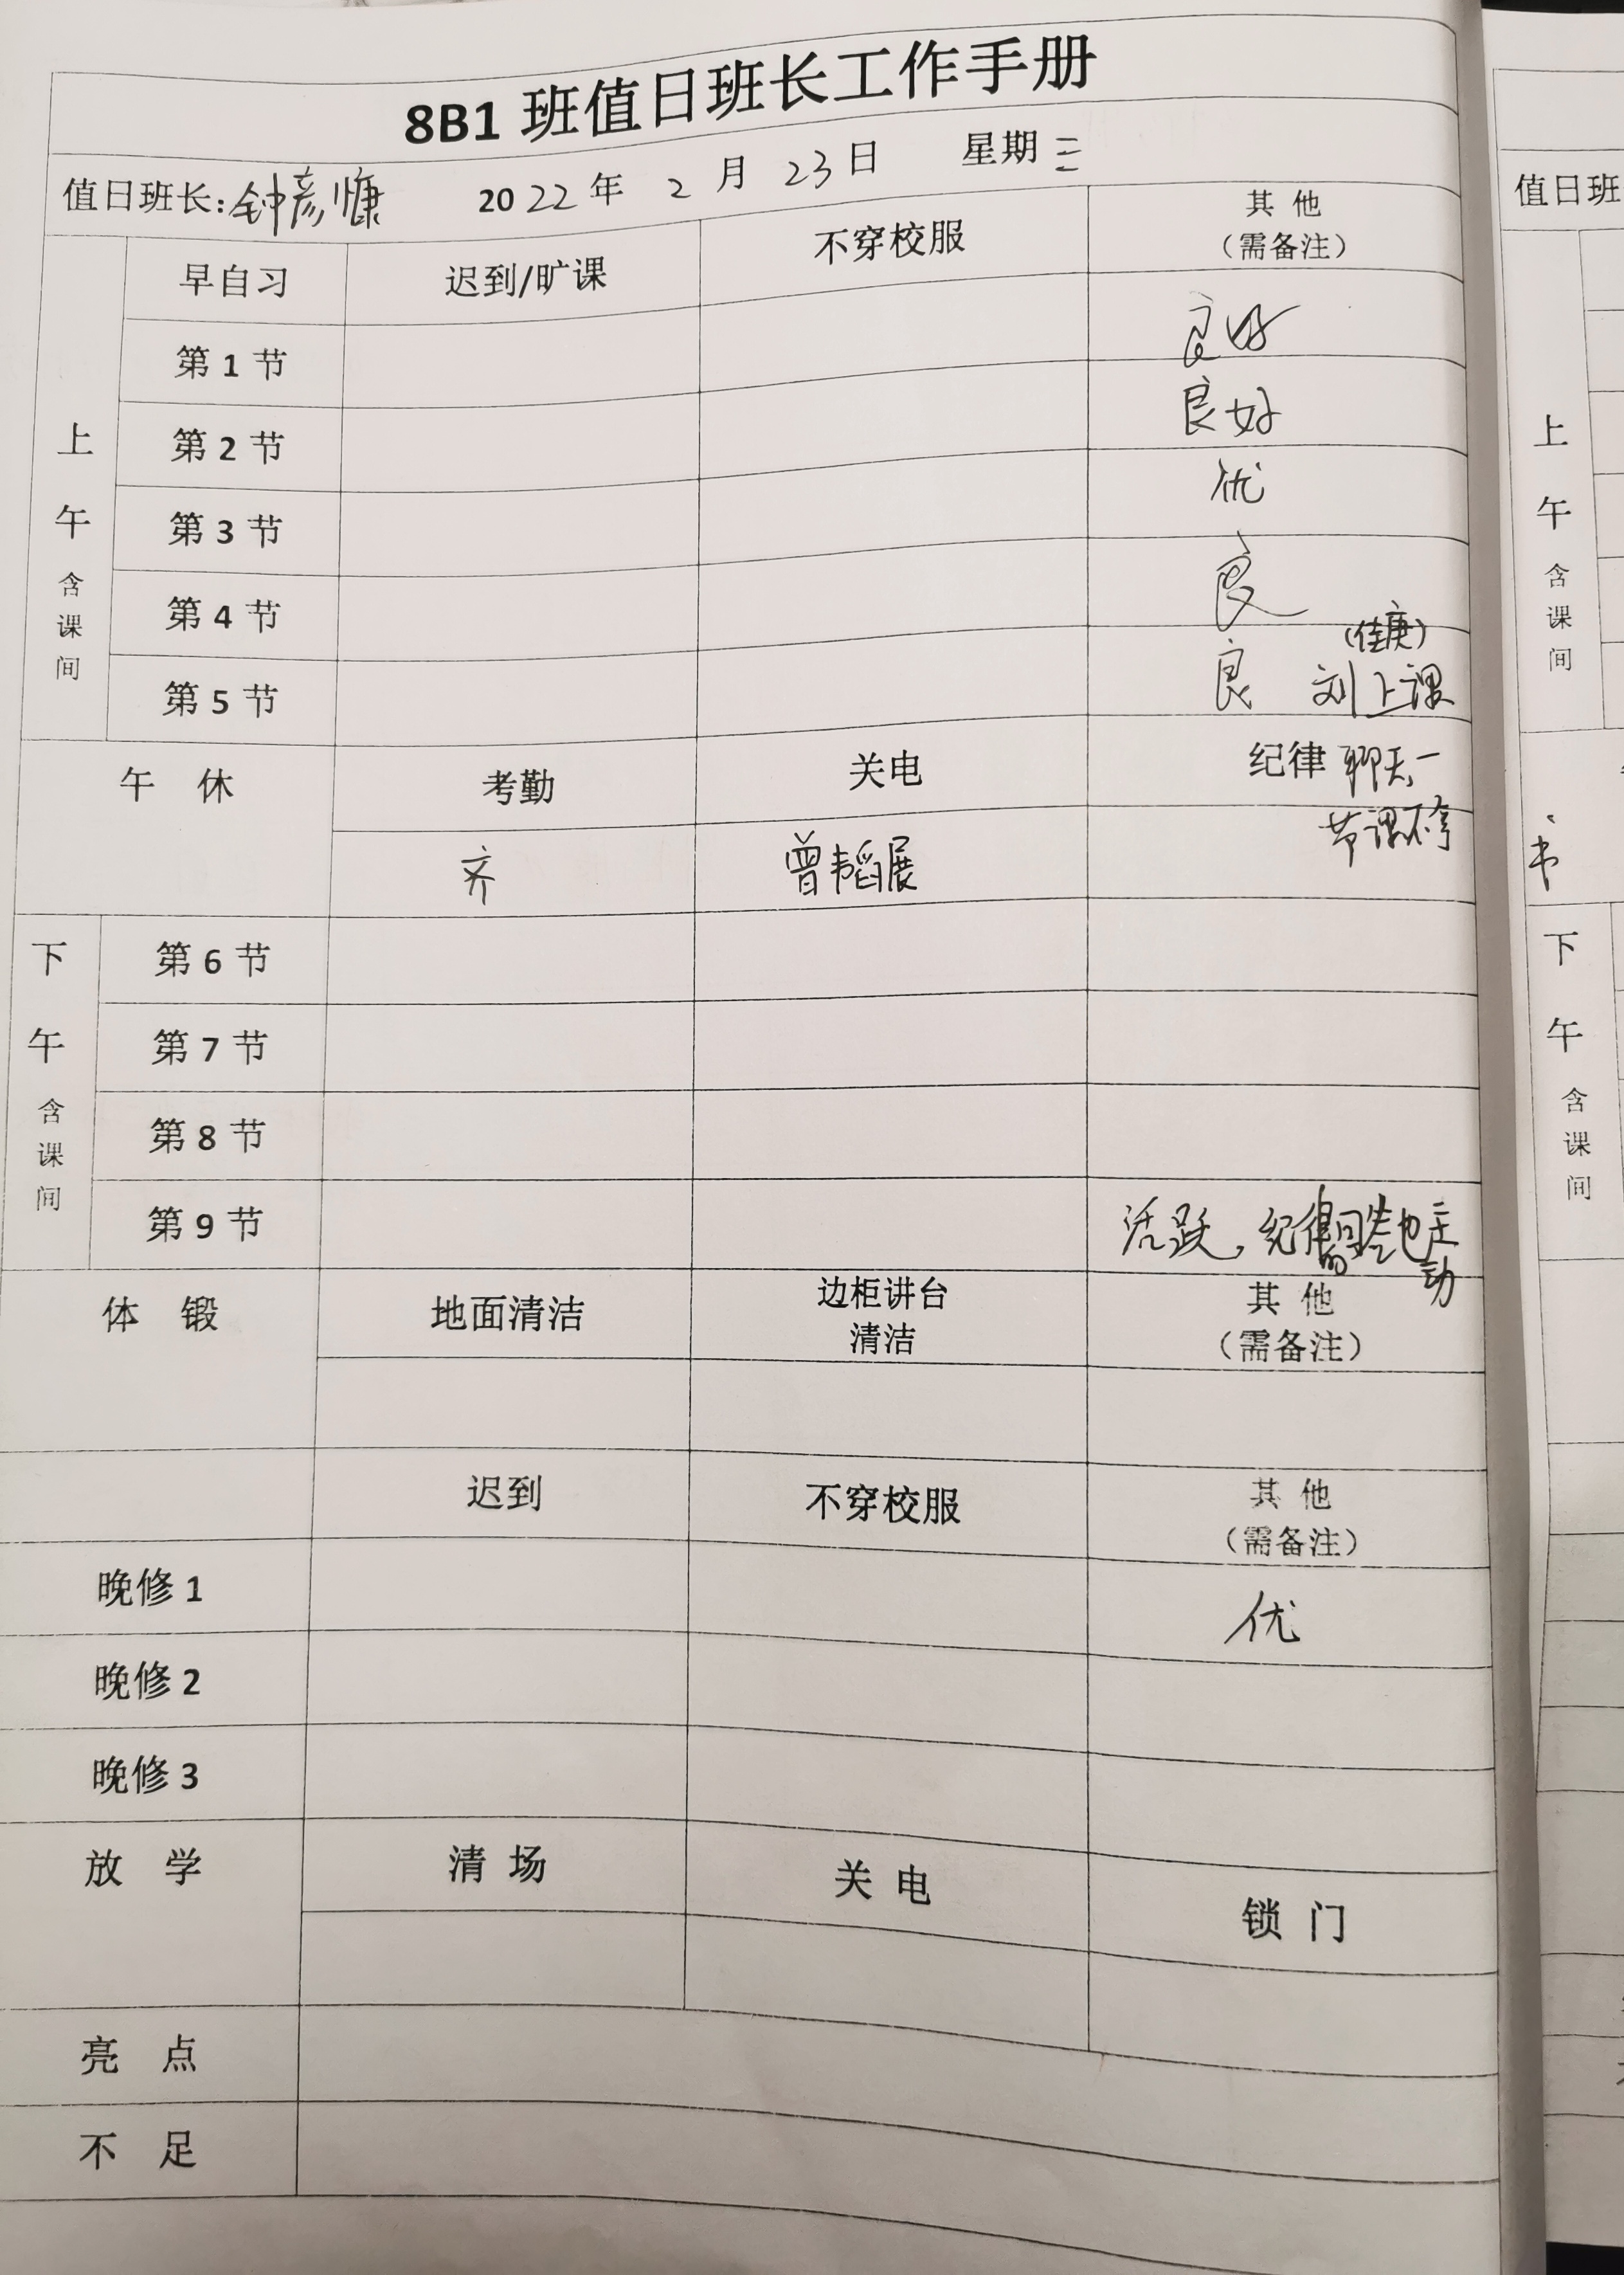 8B1 班值日班长工作手册
值日班长:钟彦慷 2022年 2月 23日 星期三
早自习 迟到/旷课 不穿校服 其他
（需备注）
上午 含课间
第1节 良好
第2节 良好
第3节 优
第4节 良
(佳庚)
第5节 良 刘 上课
午休 考勤 关电 纪律 聊天一
节课不亨
齐 曾韬展
下午 含课间
第6节
第7节
第8节
第9节 活跃，纪律 也走
动
体锻 地面清洁 边柜讲台
清洁 其他
（需备注）
迟到 不穿校服 其他
（需备注）
晚修1 优
晚修2
晚修3
放学 清场 关电 锁门
亮点
不足
值日班
上午 含课间
书
下午 含课间